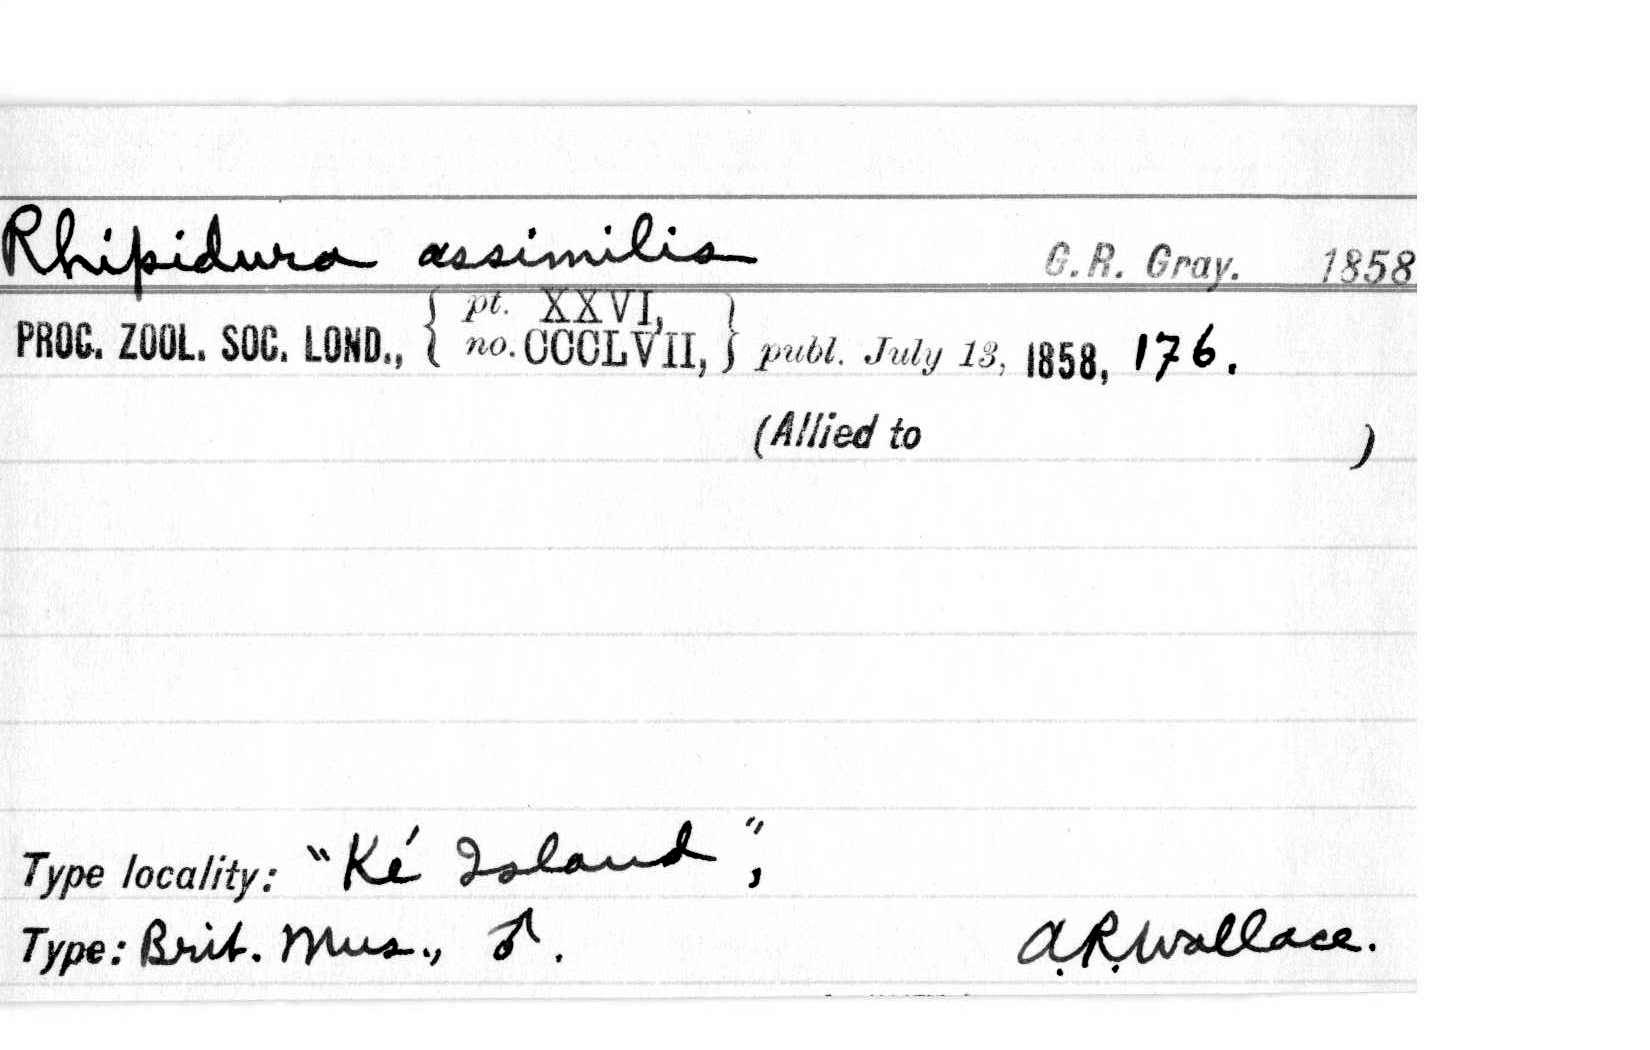 Rhipidura assimilis G. R. Gray. 1858
PROC. ZOOL. SOC. LOND., { pt. XXVI, no. CCCLVII, } publ. July 13, 1858, 176.
(Allied to )
Type locality: "Ké Island",
Type: Brit. Mus., ♂. A.R.Wallace.